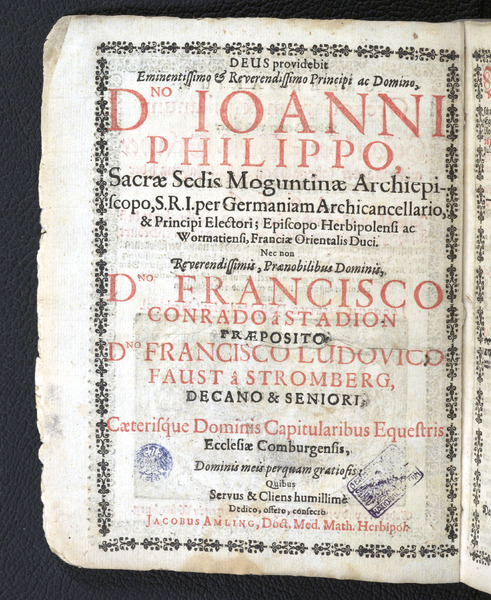 DEUS providebit
Eminentissimo & Reverendissimo Principi ac Domino,
D.NO IOANNI
PHILIPPO,
Sacræ Sedis Moguntinæ Archiepi-
scopo, S.R.I. per Germaniam Archicancellario,
& Principi Electori; Episcopo Herbipolensi ac
Wormatiensi, Franciæ Orientalis Duci.
Nec non
Reverendissimis, Prænobilibus Dominis,
D.NO. FRANCISCO
CONRADO â STADION
PRÆPOSITO
D.NO FRANCISCO LUDOVICO
FAUST â STROMBERG,
DECANO & SENIORI,
Cæterisque Dominis Capitularibus Equestris
Ecclesiæ Comburgensis,
Dominis meis perquam gratiosis,
Quibus
Servus & Cliens humillime
Dedico, offero, consecro
JACOBUS AMLING, Doct. Med. Math. Herbipoli